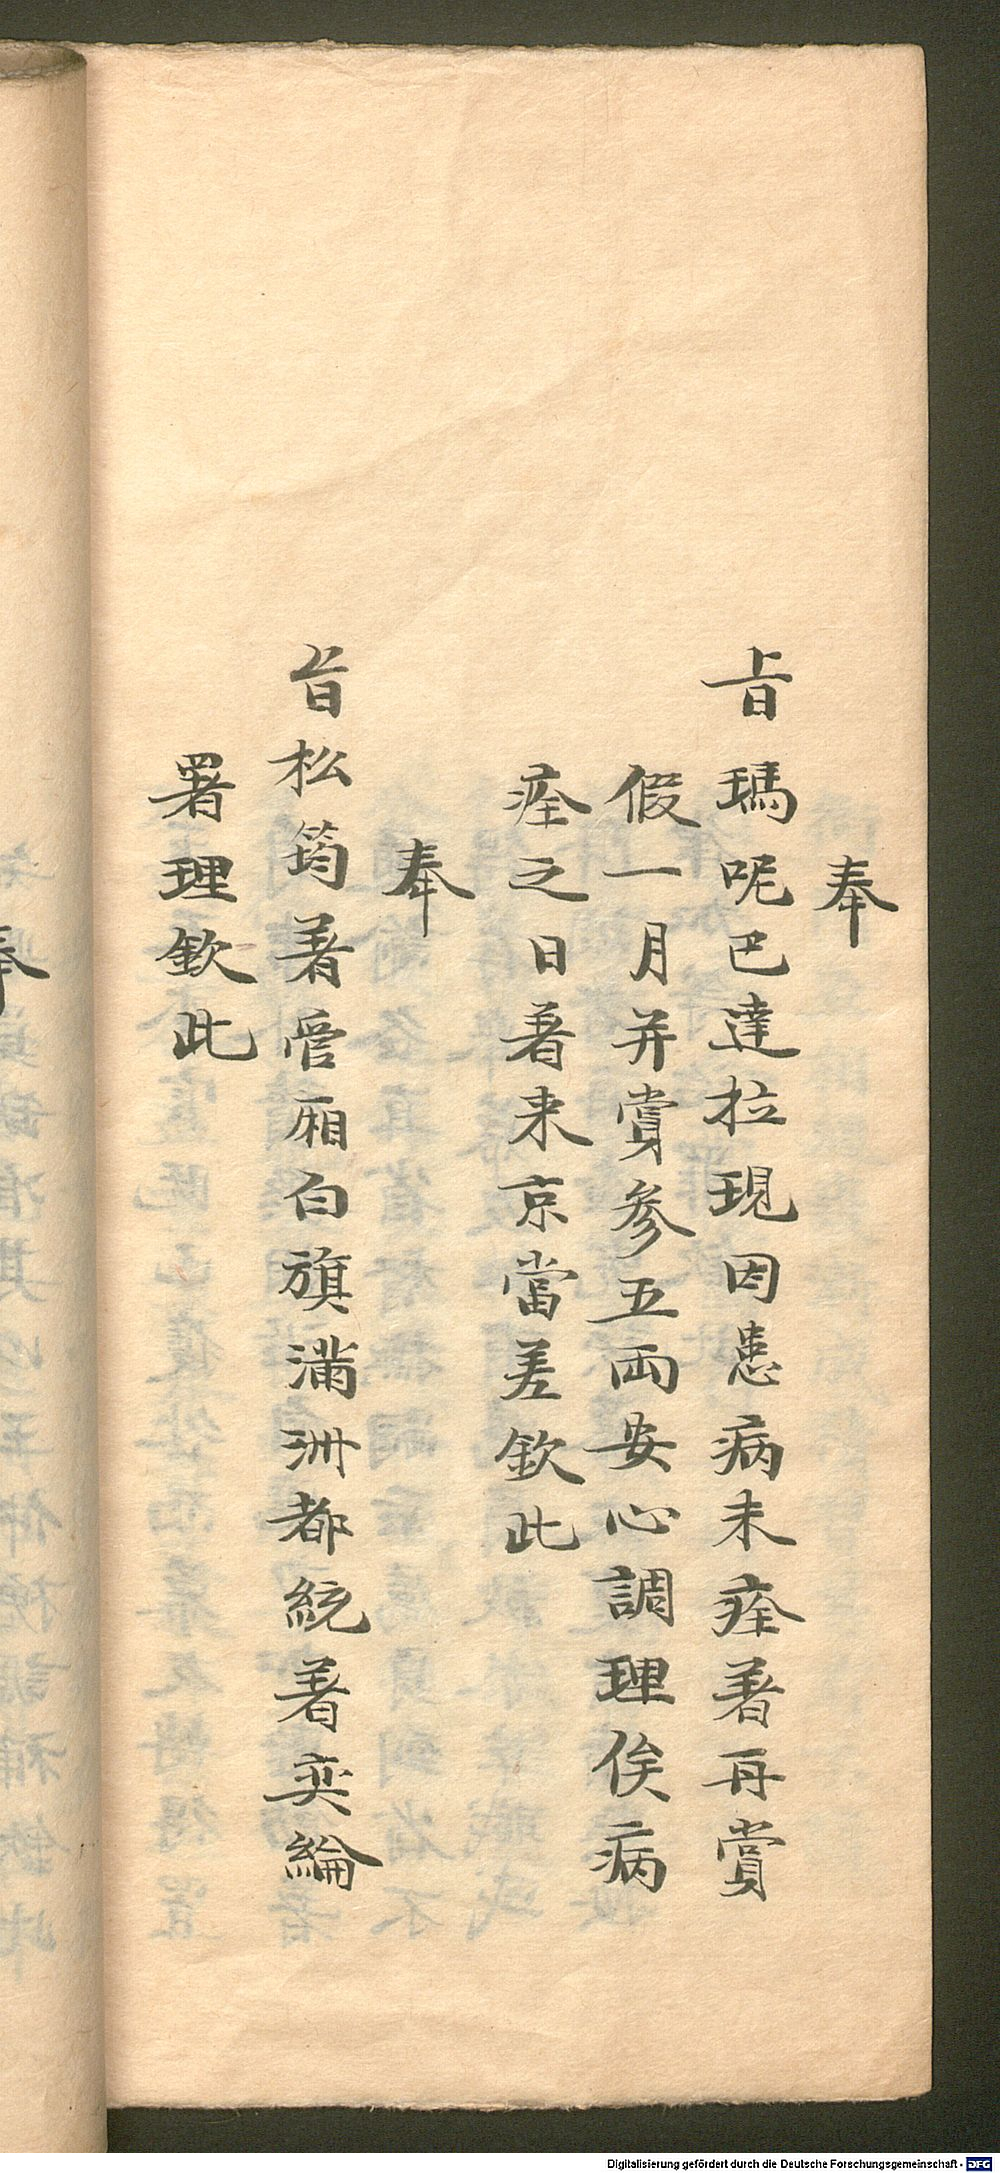 奉
旨瑪呢巴達拉現因患病未痊著再賞
假一月并賞參五兩安心調理俟病
痊之日著来京當差欽此
奉
旨松筠著管廂白旗滿洲都統著奕綸
署理欽此
奉
Digitalisierung gefördert durch die Deutsche Forschungsgemeinschaft - DFG